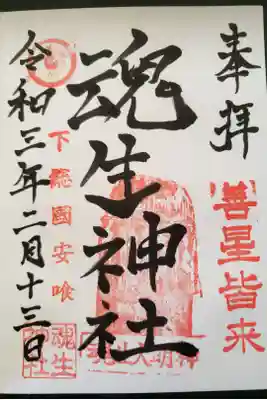 奉拝
善星皆来
魂生神社
下総國安喰
魂生神社
令和三年二月十三日